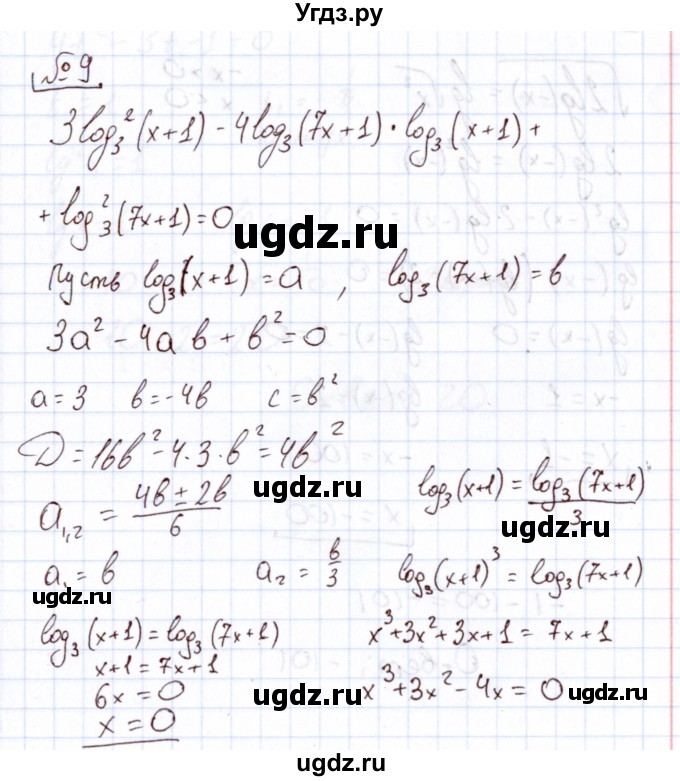 Угдз.ру
№ 9
3log₃²(x+1) - 4log₃(7x+1)·log₃(x+1)+
+ log₃²(7x+1)=0
ugdz.ru
Пусть log₃(x+1)=a, log₃(7x+1)=в
3a²-4aв+в²=0
a=3 в=-4в c=в²
D=16в²-4·3·в²=4в²
ugdz.ru
log₃(x+1)=log₃(7x+1)/3
ugdz.ru
a₁,₂ = (4в±2в)/6
a₁=в a₂=в/3 log₃(x+1)³=log₃(7x+1)
ugdz.ru
log₃(x+1)=log₃(7x+1) x³+3x²+3x+1=7x+1
x+1=7x+1
6x=0 x³+3x²-4x=0
ugdz.ru
ugdz.ru
x=0
ugdz.ru